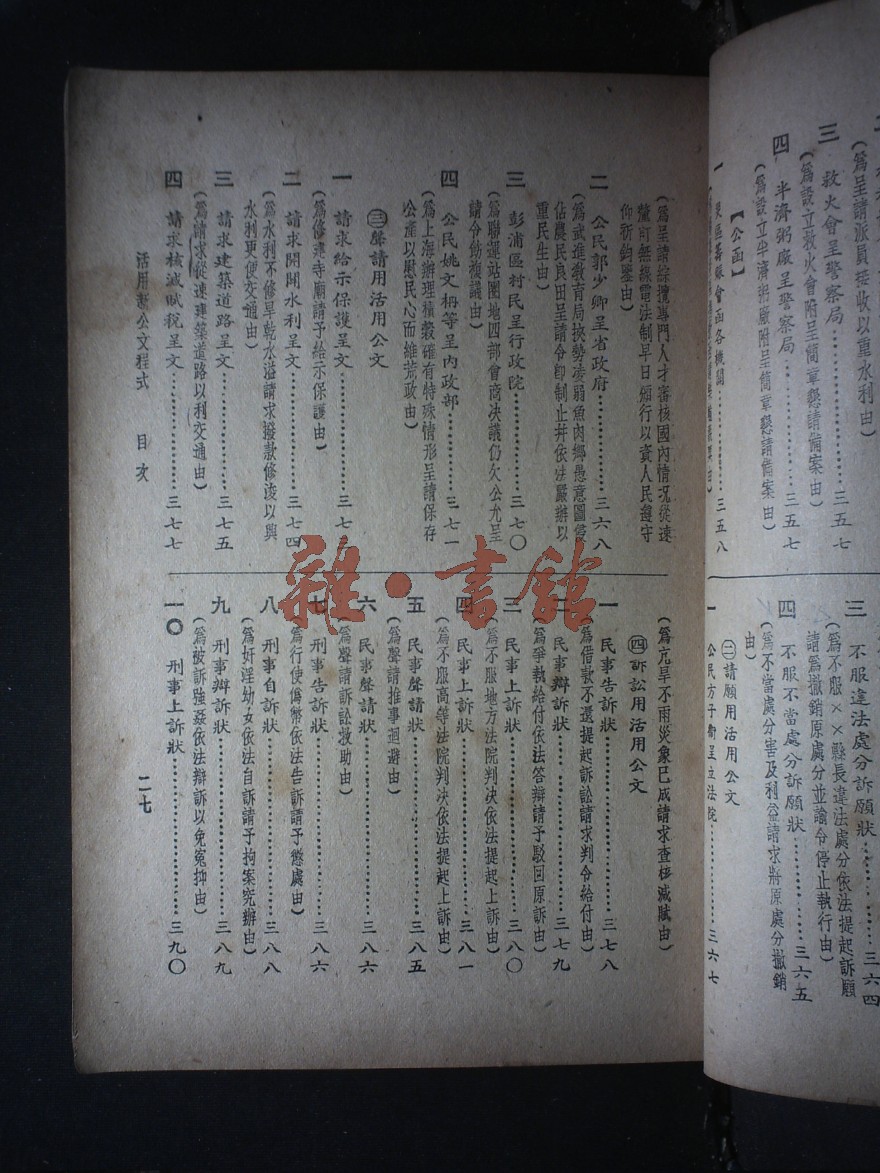 (爲呈請派員接收以重水利由)
三 救火會呈警察局……三五七
(爲設立救火會附呈簡章懇請備案由)
四 半濟粥廠呈警察局……三五七
(爲設立半濟粥廠附呈簡章懇請備案由)
【公函】
會函各機關……三五八
三 不服違法處分訴願狀……三六四
(爲不服××縣長違法處分依法提起訴願
請爲撤銷原處分並諭令停止執行由)
四 不服不當處分訴願狀……三六五
(爲不當處分害及利益請求將原處分撤銷
由)
㊁請願用活用公文
一 公民方子衡呈立法院……三六七
(爲呈請綜攬專門人才審核國內情况從速
釐訂無線電法制早日頒行以資人民遵守
仰祈鈞鑒由)
二 公民郭少卿呈省政府……三六八
(爲武進教育局挾勢凌弱魚肉鄉愚意圖侵
佔農民良田呈請令卽制止幷依法嚴辦以
重民生由)
三 彭浦區村民呈行政院……三七〇
(爲聯運站圈地四部會商决議仍欠公允呈
請令飭複議由)
四 公民姚文枬等呈內政部……三七一
(爲上海辦理積穀確有特殊情形呈請保存
公產以慰民心而維荒政由)
㊂聲請用活用公文
一 請求給示保護呈文……三七三
(爲修建寺廟請予給示保護由)
二 請求開闢水利呈文……三七四
(爲水利不修旱乾水溢請求撥款修浚以興
水利更便交通由)
三 請求建築道路呈文……三七五
(爲請求從速建築道路以利交通由)
四 請求核減賦稅呈文……三七七
(爲亢旱不雨災象已成請求查核減賦由)
㊃訴訟用活用公文
一 民事告訴狀……三七八
(爲借款不還提起訴訟請求判令給付由)
二 民事辯訴狀……三七九
(爲爭執給付依法答辯請予駁回原訴由)
三 民事上訴狀……三八〇
(爲不服地方法院判决依法提起上訴由)
四 民事上訴狀……三八一
(爲不服高等法院判决依法提起上訴由)
五 民事聲請狀……三八五
(爲聲請推事迴避由)
六 民事聲請狀……三八六
(爲聲請訴訟救助由)
七 刑事告訴狀……三八六
(爲行使僞幣依法告訴請予懲處由)
八 刑事自訴狀……三八八
(爲奸淫幼女依法自訴請予拘案究辦由)
九 刑事辯訴狀……三八九
(爲被訴強姦依法辯訴以免冤抑由)
一〇 刑事上訴狀……三九〇
活用公文程式 目次
二七
雜·書館